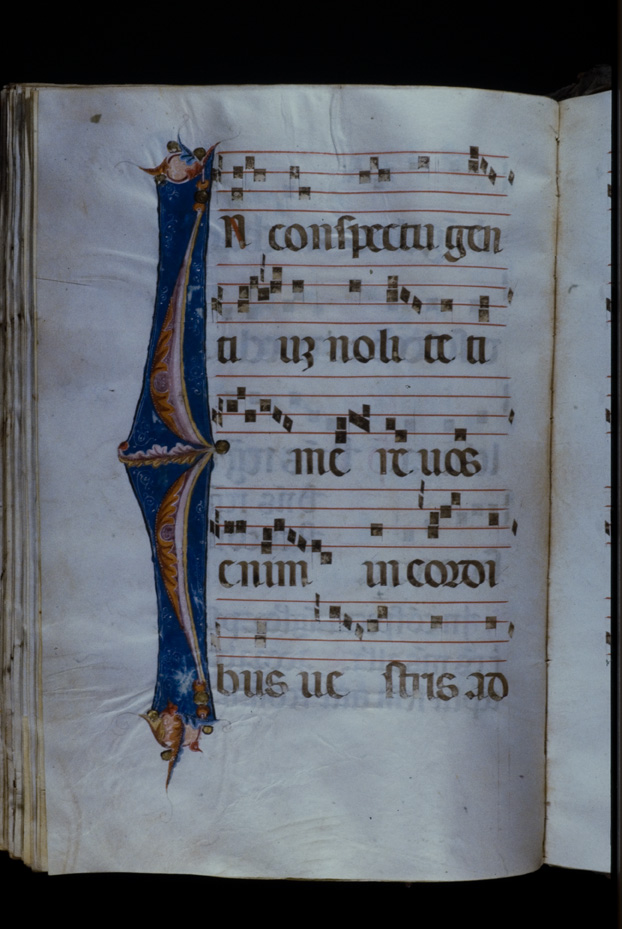 IN conspectu gen
tiuʒ nolite ti
mere uos
enim in cordi
bus uestris ad